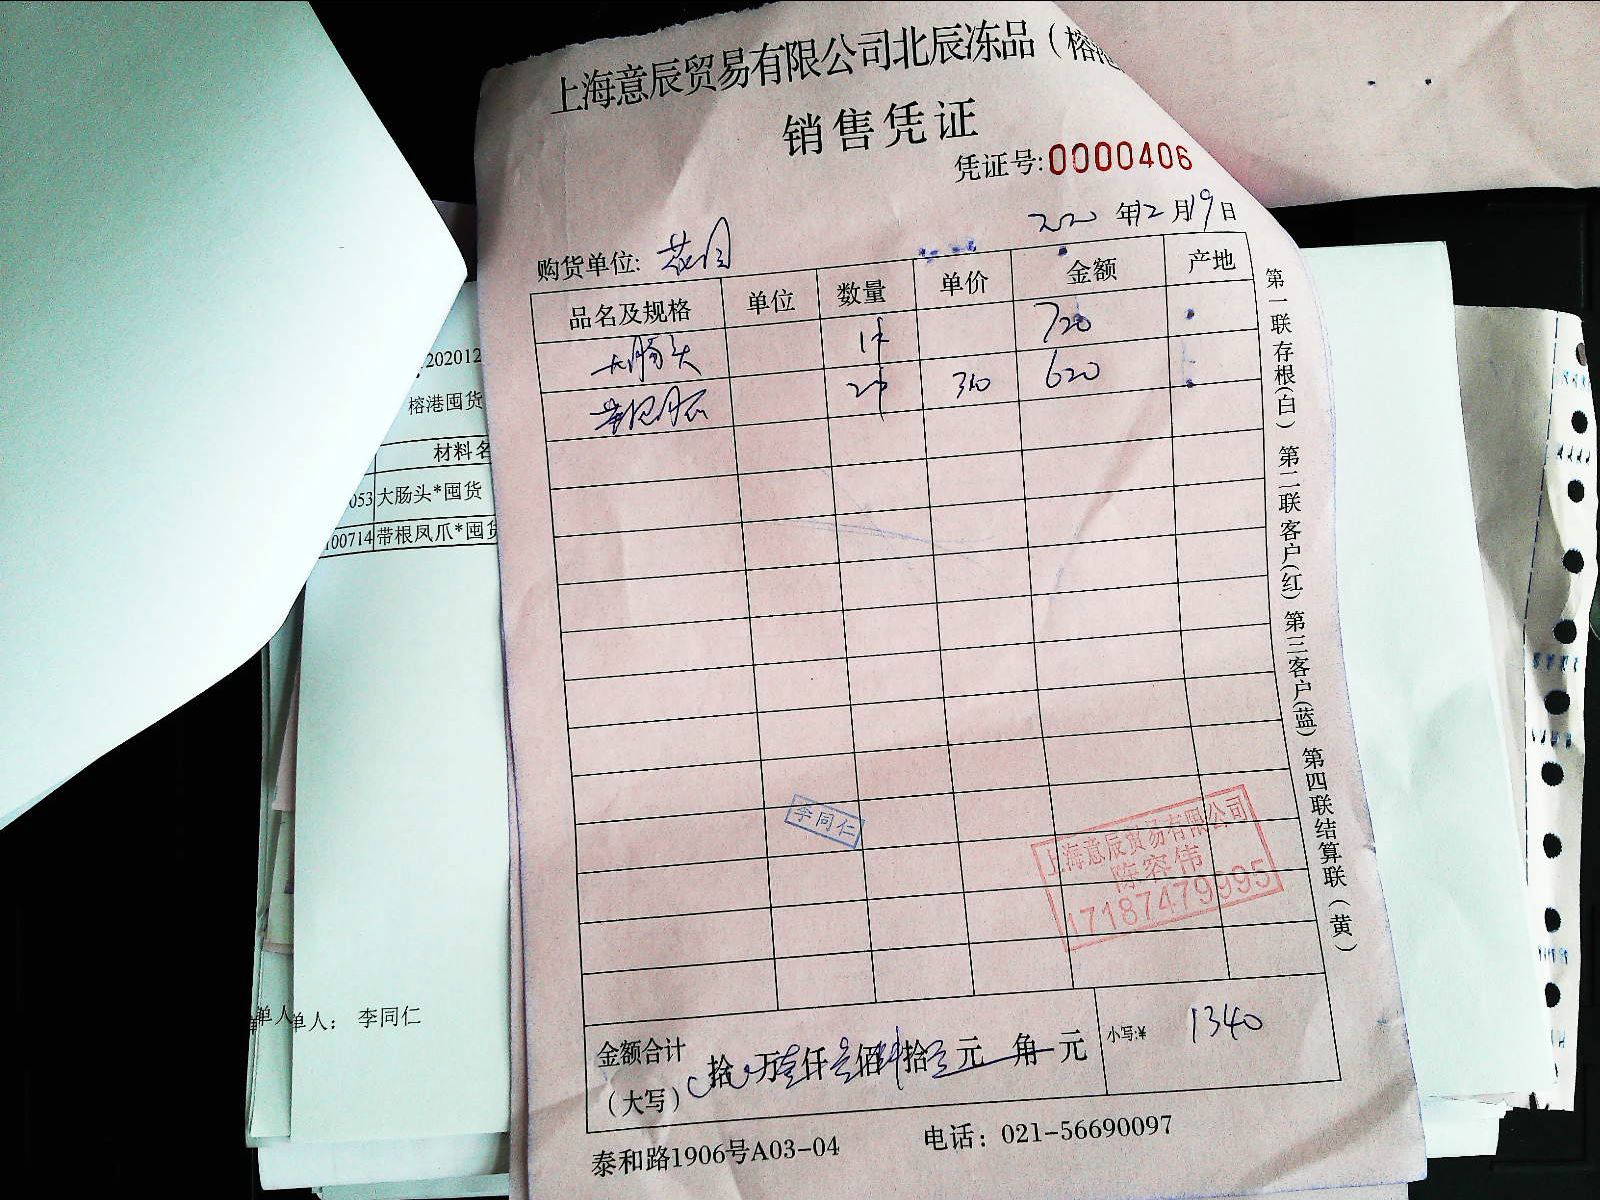 上海意辰贸易有限公司北辰冻品（榕港
销售凭证
凭证号:0000406
年12月19日
购货单位:
品名及规格 单位 数量 单价 金额 产地
大肠头 1件 720
2件 310 620
第一联存根(白) 第二联客户(红) 第三客户(蓝) 第四联结算联（黄）
李同仁
上海意辰贸易有限公司
陈容伟
17187479995
金额合计
（大写） 拾 万壹仟叁佰肆拾 元 角 元
小写:¥ 1340
泰和路1906号A03-04 电话：021-56690097
202012
榕港囤货
材料名
053 大肠头*囤货
00714 带根凤爪*囤货
单人
单人： 李同仁